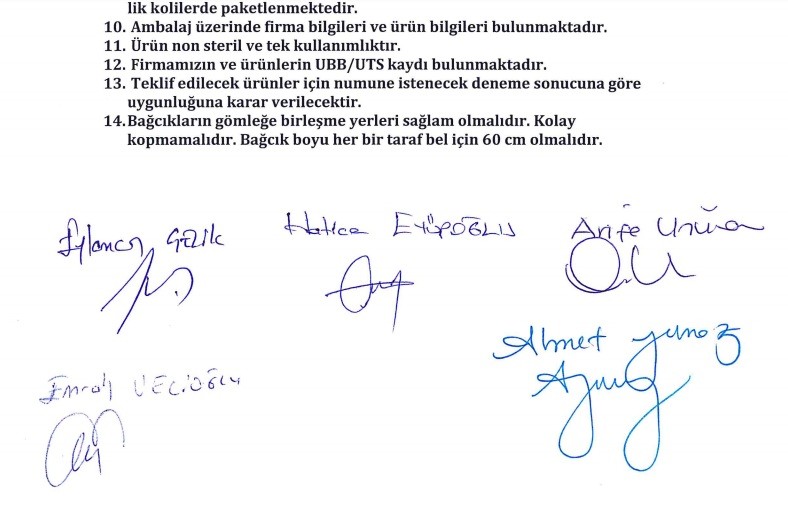 lik kolilerde paketlenmektedir.
10. Ambalaj üzerinde firma bilgileri ve ürün bilgileri bulunmaktadır.
11. Ürün non steril ve tek kullanımlıktır.
12. Firmamızın ve ürünlerin UBB/UTS kaydı bulunmaktadır.
13. Teklif edilecek ürünler için numune istenecek deneme sonucuna göre
uygunluğuna karar verilecektir.
14.Bağcıkların gömleğe birleşme yerleri sağlam olmalıdır. Kolay
kopmamalıdır. Bağcık boyu her bir taraf bel için 60 cm olmalıdır.
Hatice EYÜPOĞLU
Arife
Ahmet
Emrah VECİOĞLU